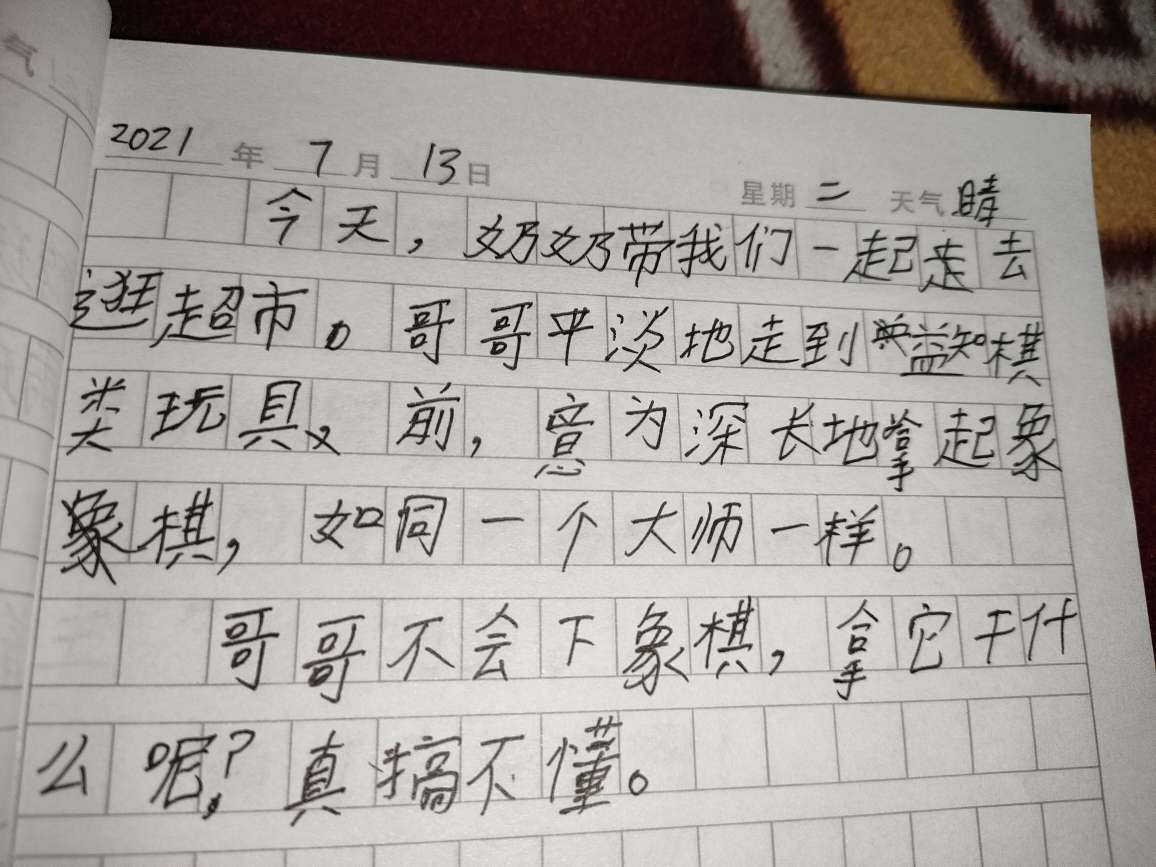 气
2021 年 7 月 13 日 星期 二 天气 晴
今天，奶奶带我们一起走去
逛超市。哥哥平淡地走到益知棋
类玩具前，意为深长地拿起象
象棋，如同一个大师一样。
哥哥不会下象棋，拿它干什
么呢？真搞不懂。